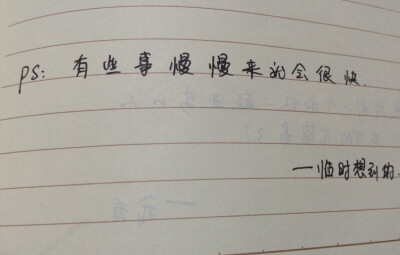 PS: 有些事慢慢来的会很快.
—临时想到的.